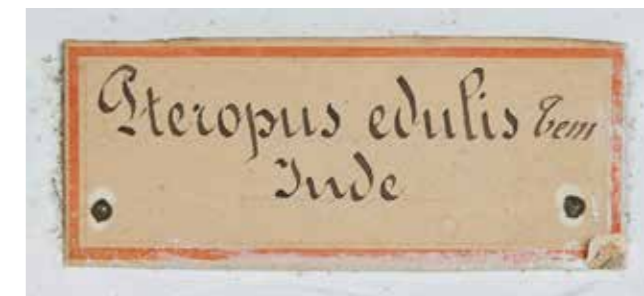 Pteropus edulis Tem
Inde